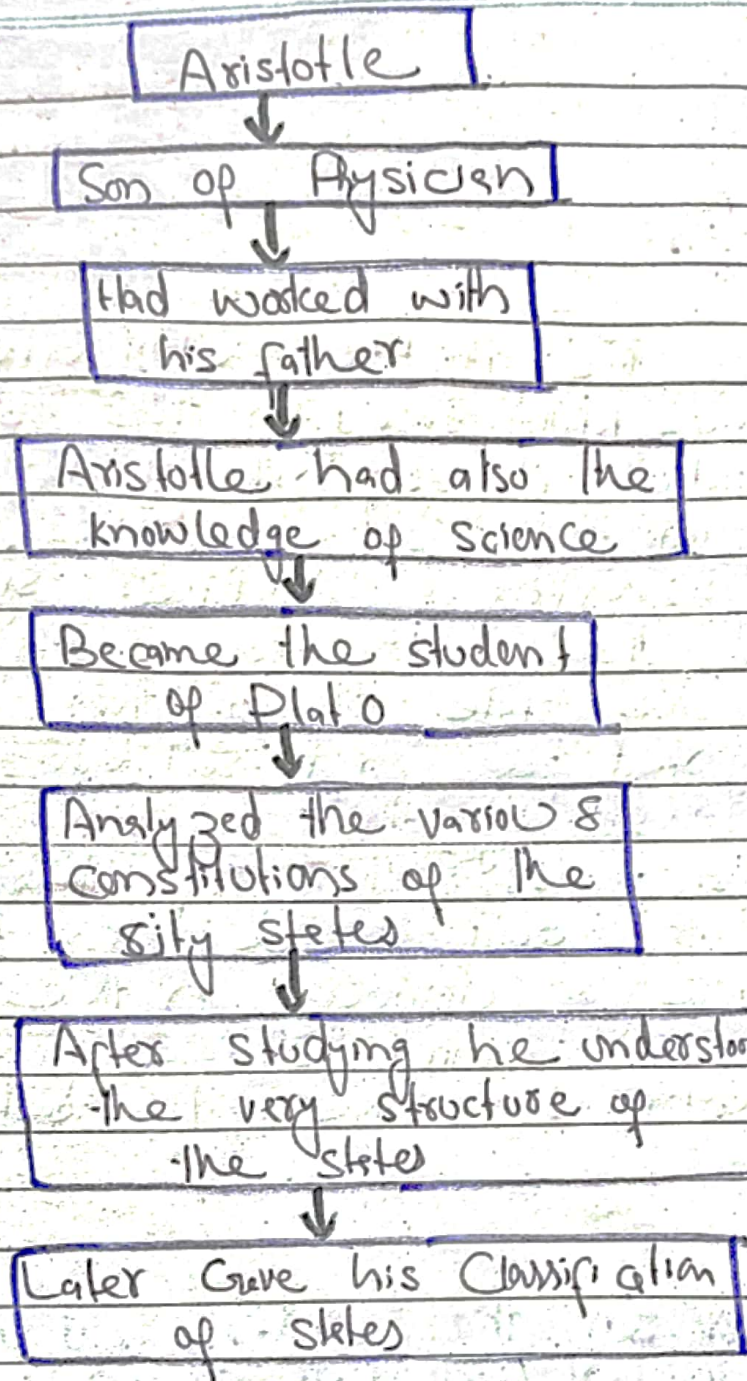 Aristotle
Son of Physician
Had worked with
his father
Aristotle had also the
knowledge of science
Became the student
of Plato
Analyzed the various
constitutions of the
sity states
After studying he understoo
the very structure of
the states
Later Gave his Classification
of states